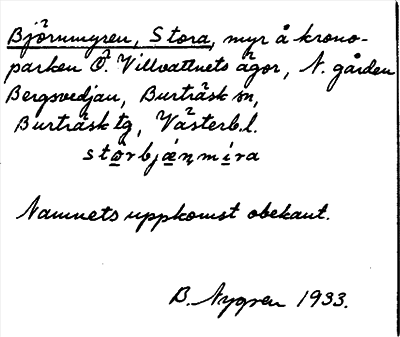 Björnmyren, Stora, myr å krono-
parken Ö. Villvattnets ägor, N. gården
Bergsvedjan, Burträsk sn,
Burträsk tg, Västerb. l.
stọ̈rbjæ̣ṇmịra
Namnets uppkomst obekant.
B. Nygren 1933.